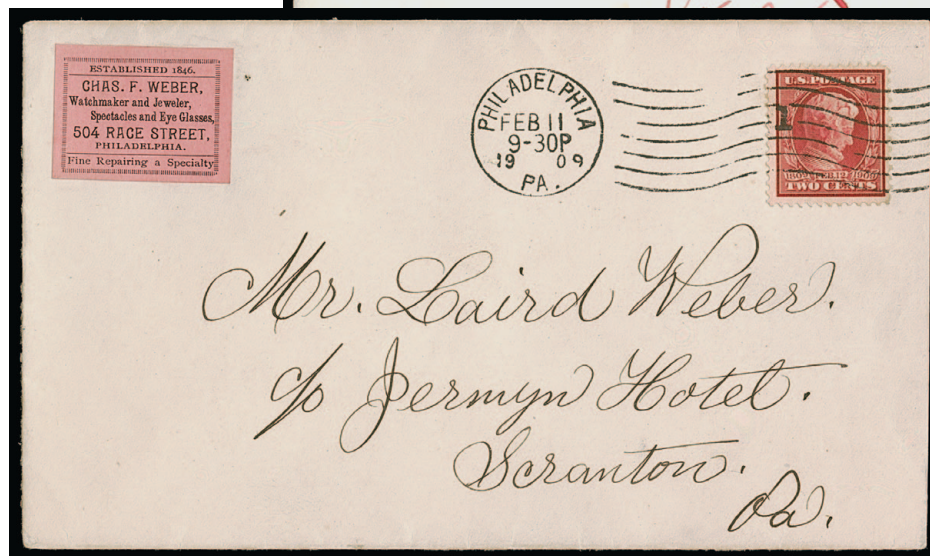 ESTABLISHED 1846.
CHAS. F. WEBER,
Watchmaker and Jeweler,
Spectacles and Eye Glasses,
504 RACE STREET,
PHILADELPHIA.
Fine Repairing a Specialty
PHILADELPHIA
FEB 11
9-30P
19 09
PA.
1
U.S. POSTAGE
1809 FEB. 12 1909
TWO CENTS
Mr. Laird Weber.
c/o Jermyn Hotel.
Scranton.
Pa.